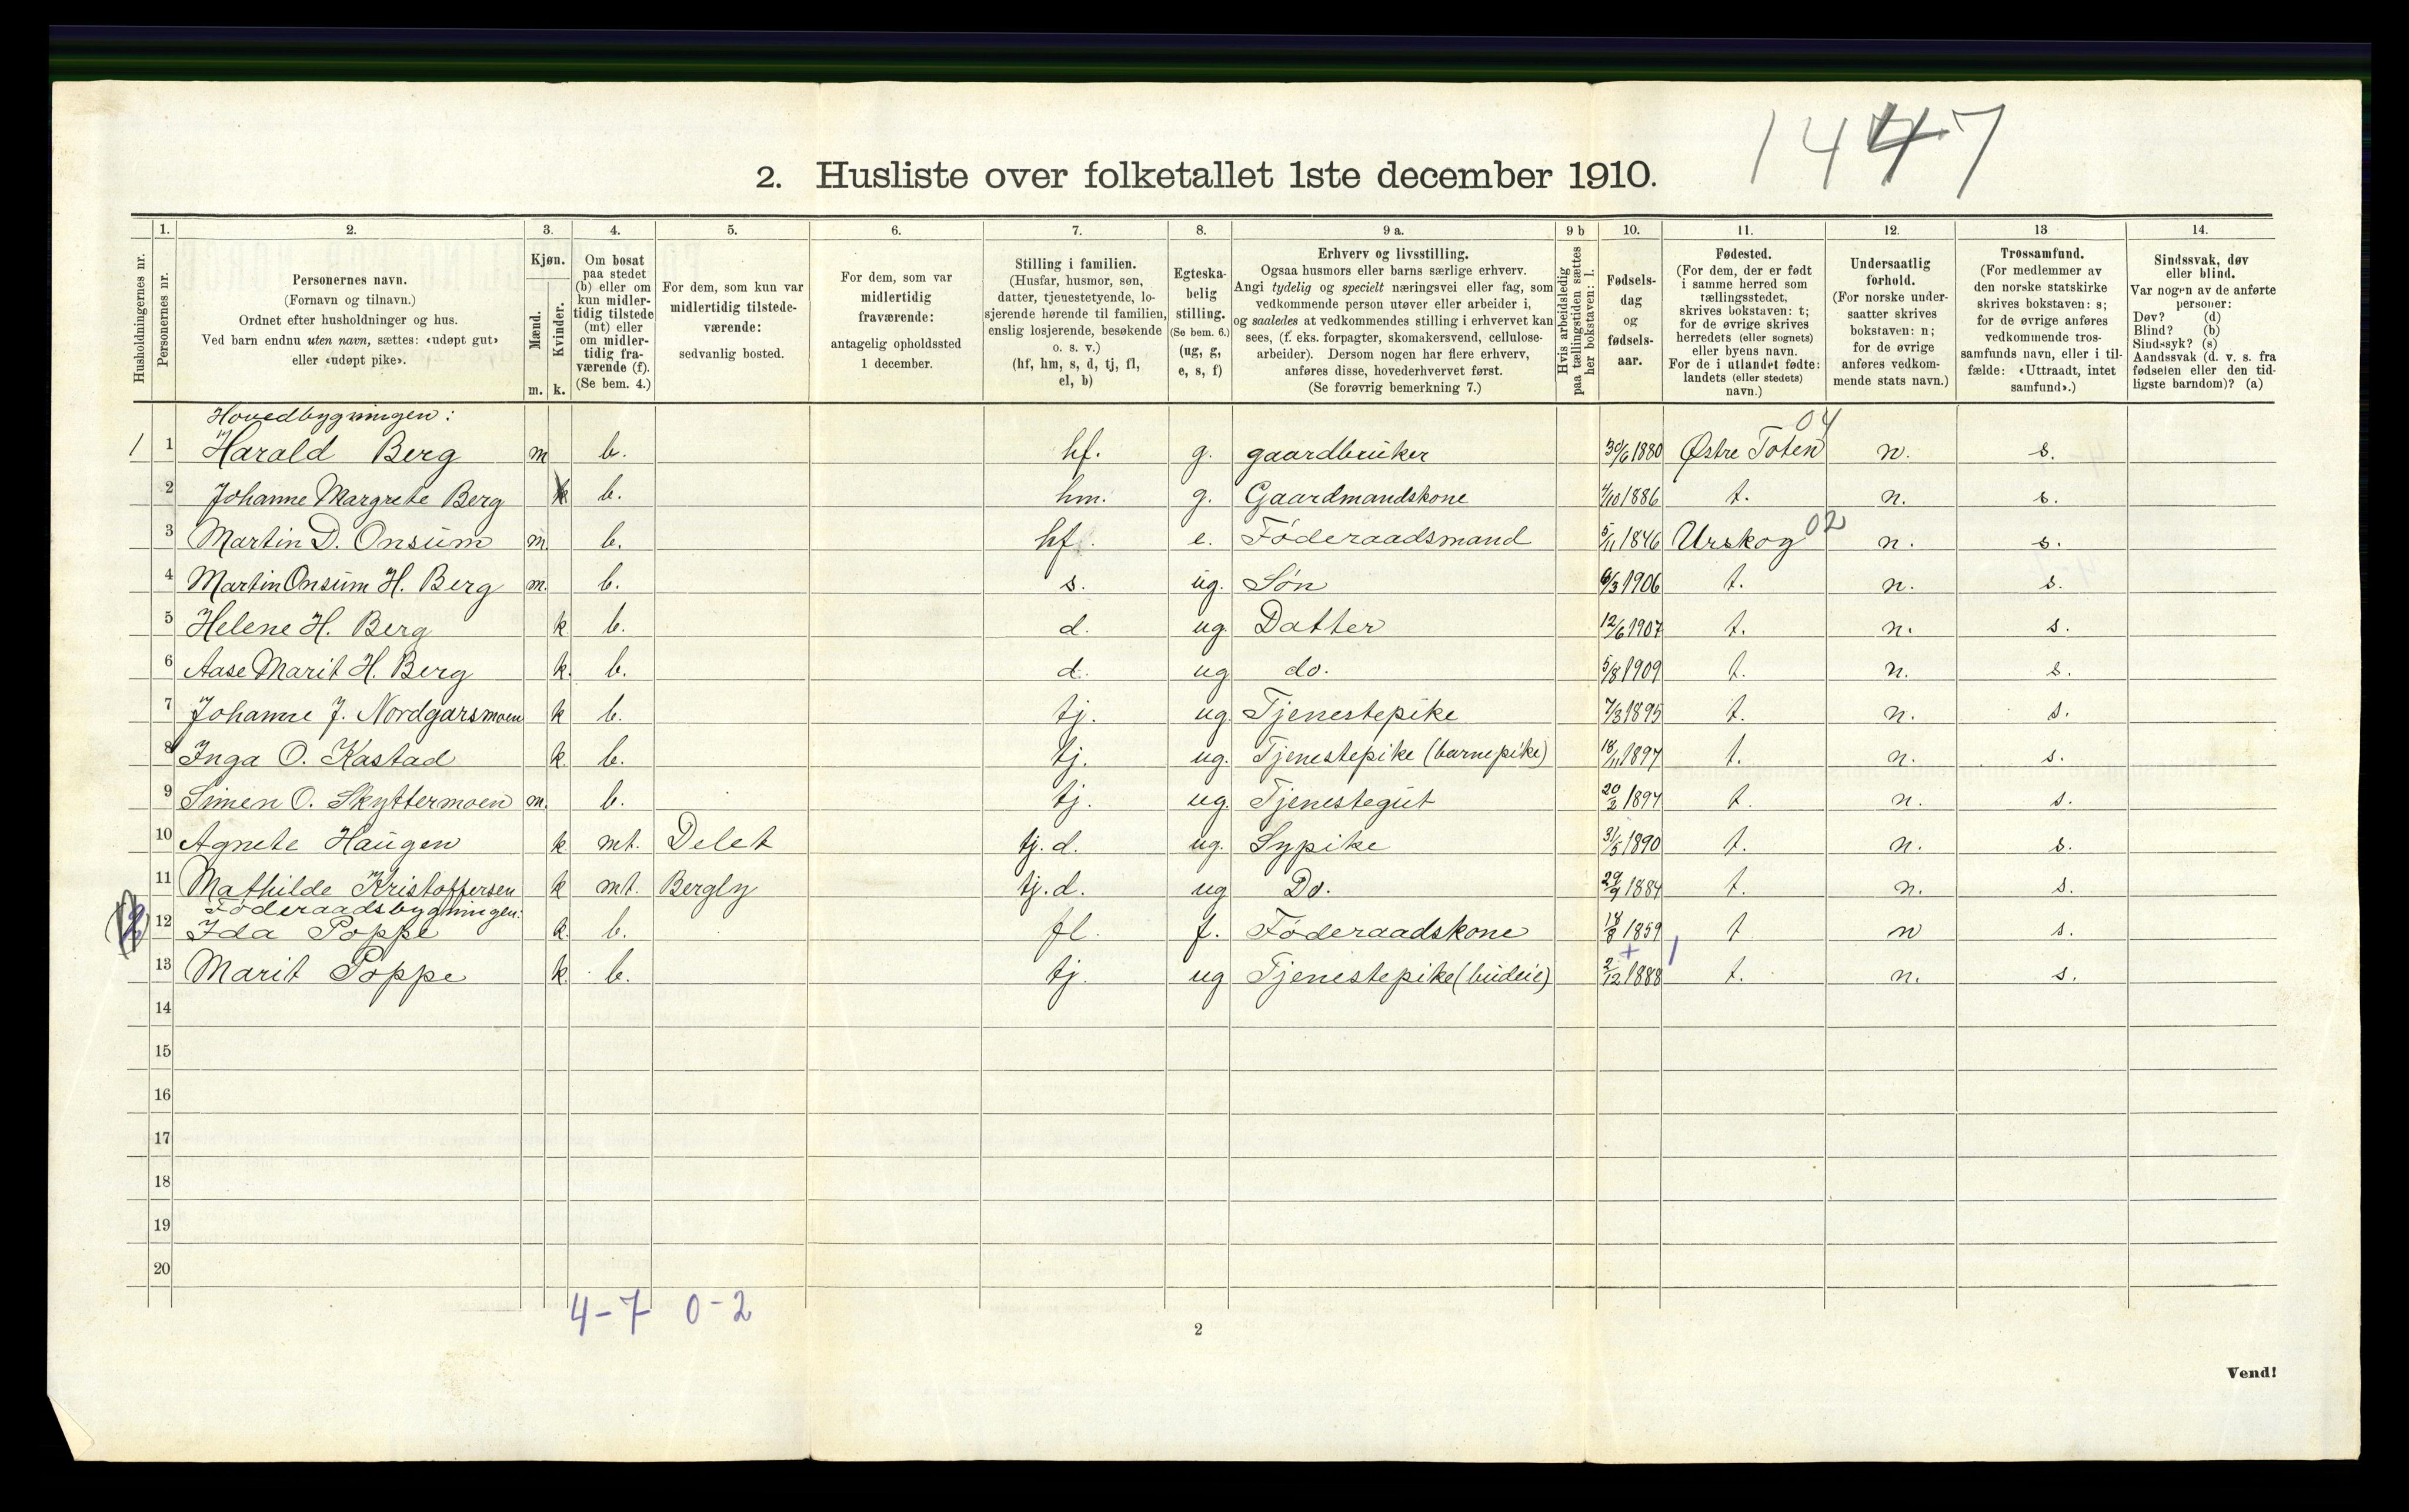 1447
2. Husliste over folketallet 1ste december 1910.
Husholdningernes nr.
1.
Personernes nr.
2.
Personernes navn.
(Fornavn og tilnavn.)
Ordnet efter husholdninger og hus.
Ved barn endnu uten navn, sættes: «udøpt gut»
eller «udøpt pike».
3.
Kjøn.
Mænd.
Kvinder.
m. k.
4.
Om bosat
paa stedet
(b) eller om
kun midler-
tidig tilstede
(mt) eller
om midler-
tidig fra-
værende (f).
(Se bem. 4.)
5.
For dem, som kun var
midlertidig tilstede-
værende:
sedvanlig bosted.
6.
For dem, som var
midlertidig
fraværende:
antagelig opholdssted
1 december.
7.
Stilling i familien.
(Husfar, husmor, søn,
datter, tjenestetyende, lo-
sjerende hørende til familien,
enslig losjerende, besøkende
o. s. v.)
(hf, hm, s, d, tj, fl,
el, b)
8.
Egteska-
belig
stilling.
(Se bem. 6.)
(ug, g,
e, s, f)
9 a.
Erhverv og livsstilling.
Ogsaa husmors eller barns særlige erhverv.
Angi tydelig og specielt næringsvei eller fag, som
vedkommende person utøver eller arbeider i,
og saaledes at vedkommendes stilling i erhvervet kan
sees, (f. eks. forpagter, skomakersvend, cellulose-
arbeider). Dersom nogen har flere erhverv,
anføres disse, hovederhvervet først.
(Se forøvrig bemerkning 7.)
9 b
Hvis arbeidsledig
paa tællingstiden sættes
her bokstaven: l.
10.
Fødsels-
dag
og
fødsels-
aar.
11.
Fødested.
(For dem, der er født
i samme herred som
tællingsstedet,
skrives bokstaven: t;
for de øvrige skrives
herredets (eller sognets)
eller byens navn.
For de i utlandet fødte:
landets (eller stedets)
navn.)
12.
Undersaatlig
forhold.
(For norske under-
saatter skrives
bokstaven: n;
for de øvrige
anføres vedkom-
mende stats navn.)
13
Trossamfund.
(For medlemmer av
den norske statskirke
skrives bokstaven: s;
for de øvrige anføres
vedkommende tros-
samfunds navn, eller i til-
fælde: «Uttraadt, intet
samfund».)
14.
Sindssvak, døv
eller blind.
Var nogen av de anførte
personer:
Døv? (d)
Blind? (b)
Sindssyk? (s)
Aandssvak (d. v. s. fra
fødselen eller den tid-
ligste barndom)? (a)
Hovedbygningen:
04
1 1 Harald Berg m b. hf. g. gaardbruker 30/6 1880 Østre Toten n. s.
2 Johanne Margrete Berg k b. hm. g. Gaardmandskone 4/10 1886 t. n. s.
02
3 Martin D. Onsum m. b. hf. e. Föderaadsmand 5/11 1846 Urskog n. s.
4 Martin Onsum H. Berg m. b. s. ug. Sön 6/3 1906 t. n. s.
5 Helene H. Berg k b. d. ug. Datter 12/6 1907 t. n. s.
6 Aase Marit H. Berg k. b. d. ug do. 5/8 1909 t. n. s.
7 Johanne J. Nordgarsmoen k b. tj. ug. Tjenestepike 7/3 1895 t. n. s.
8 Inga O. Kastad k. b. tj. ug. Tjenestepike (barnepike) 18/11 1897 t. n. s.
9 Simen O. Skyttermoen m. b. tj. ug. Tjenestegut 20/2 1894 t. n. s.
10 Agnete Haugen k mt. Delet tj. d. ug. Sypike 31/5 1890 t. n. s.
11 Mathilde Kristoffersen k mt. Bergly tj. d. ug Do. 29/9 1884 t. n. s.
Föderaadsbygningen:
12 Ida Poppe k. b. fl. f. Föderaadskone 18/8 1859 t n s.
+ 1
13 Marit Poppe k. b. tj. ug Tjenestepike (budeie) 2/12 1888 t. n. s.
14
15
16
17
18
19
20
4-7 0-2
2
Vend!